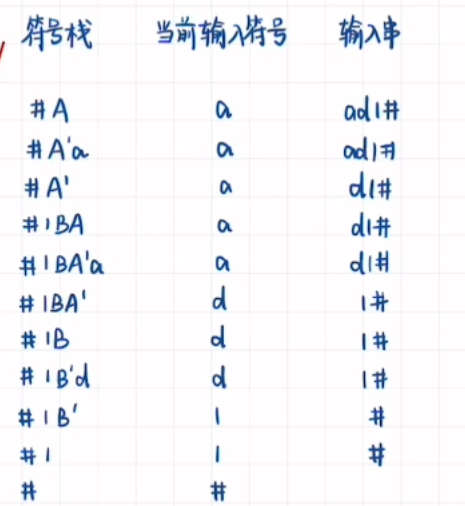 符号栈 当前输入符号 输入串
#A a ad1#
#A'a a ad1#
#A' a d1#
#1BA a d1#
#1BA'a a d1#
#1BA' d 1#
#1B d 1#
#1B'd d 1#
#1B' 1 #
#1 1 #
# #